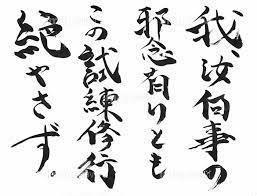 我、汝何事の
邪念有りとも
この試練修行
絶やさず。